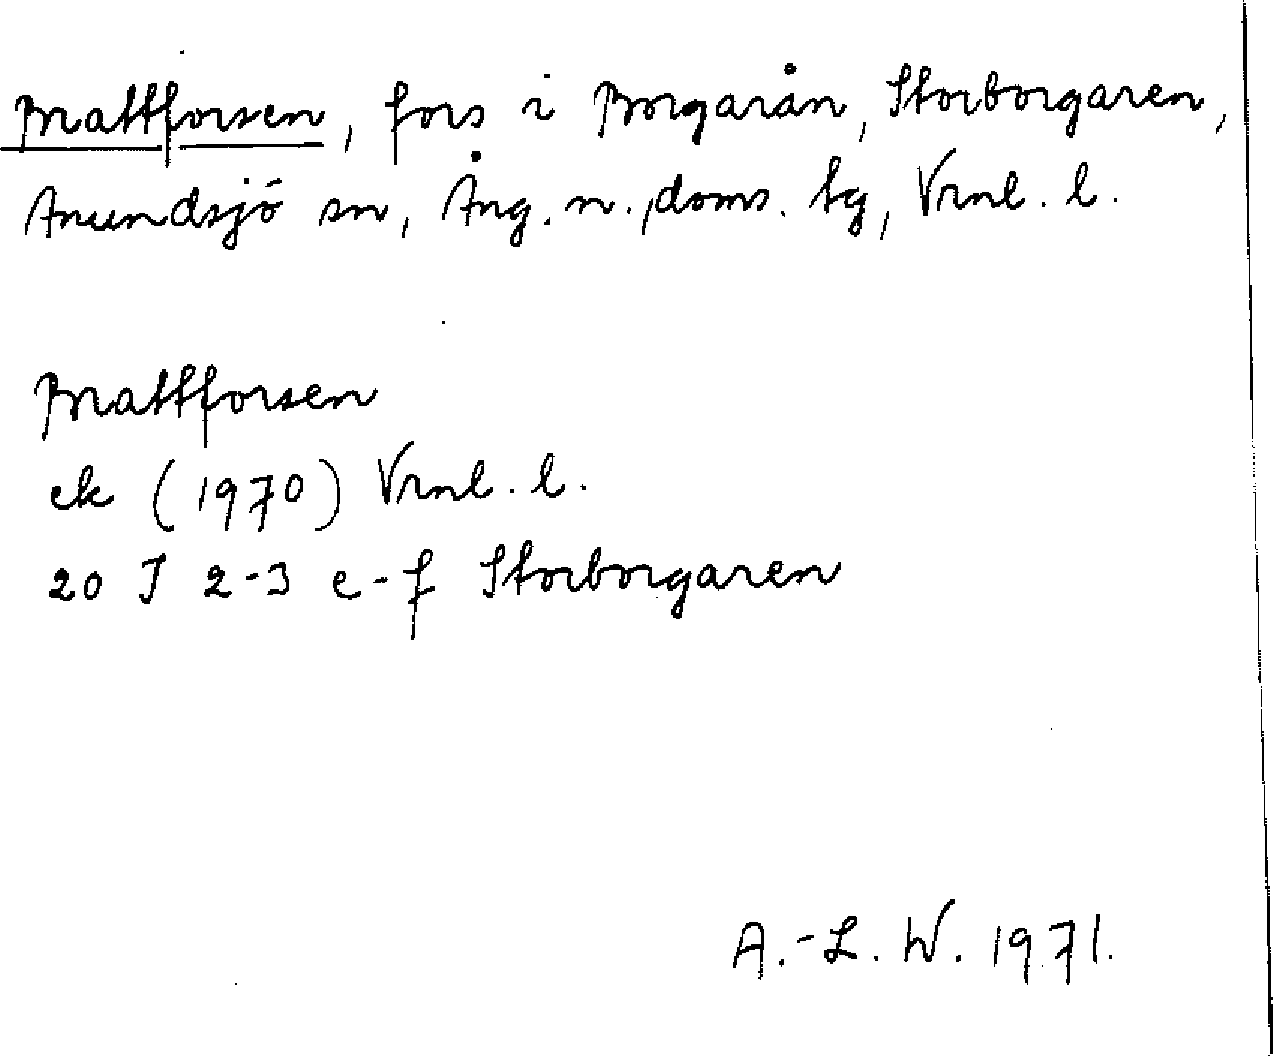 Brattforsen, fors i Borgarån, Storborgaren,
Anundsjö sn, Ång. n. doms. tg, Vrnl. l.
Brattforsen
ek (1970) Vrnl. l.
20 J 2-3 e-f Storborgaren
A.-L. W. 1971.